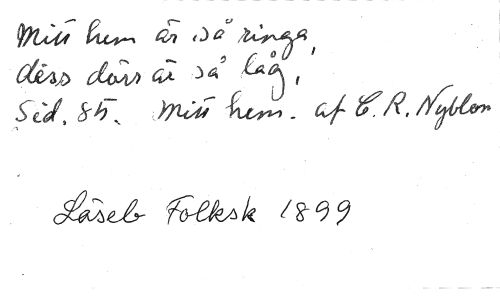 Mitt hem är så ringa,
dess dörr är så låg,
Sid. 85. Mitt hem. af C. R. Nyblom
Läseb Folksk 1899